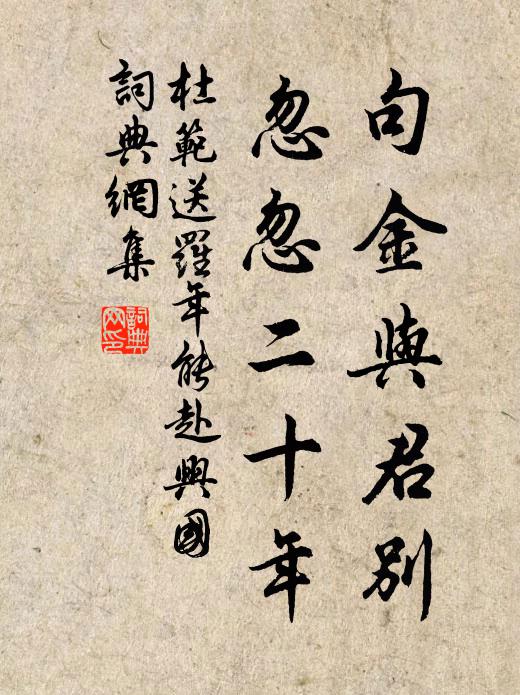 句金與君別
忽忽二十年
杜範送羅年能赴興國
詞典網集
詞典网印